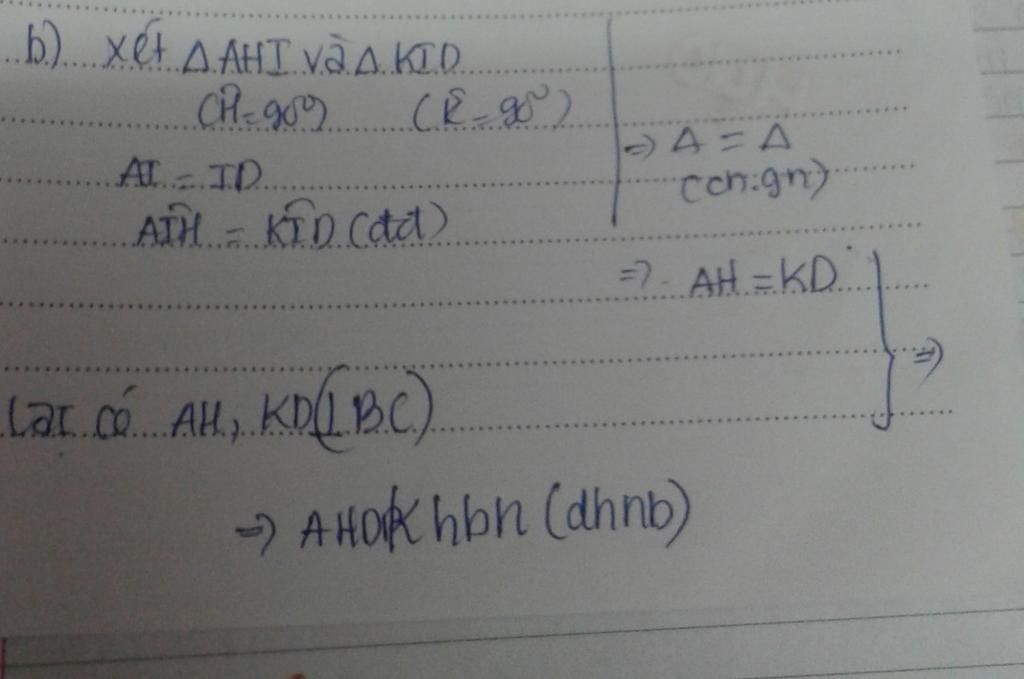 b) xét Δ AHI và Δ KID
(Ĥ=90°) (K̂=90°)
AI = ID
AÎH = KÎD (dd)
=> Δ = Δ
(ch.gn)
=> AH = KD
=>
Lại có AH, KD(⊥BC)
=> AHDK hbh (dhnb)